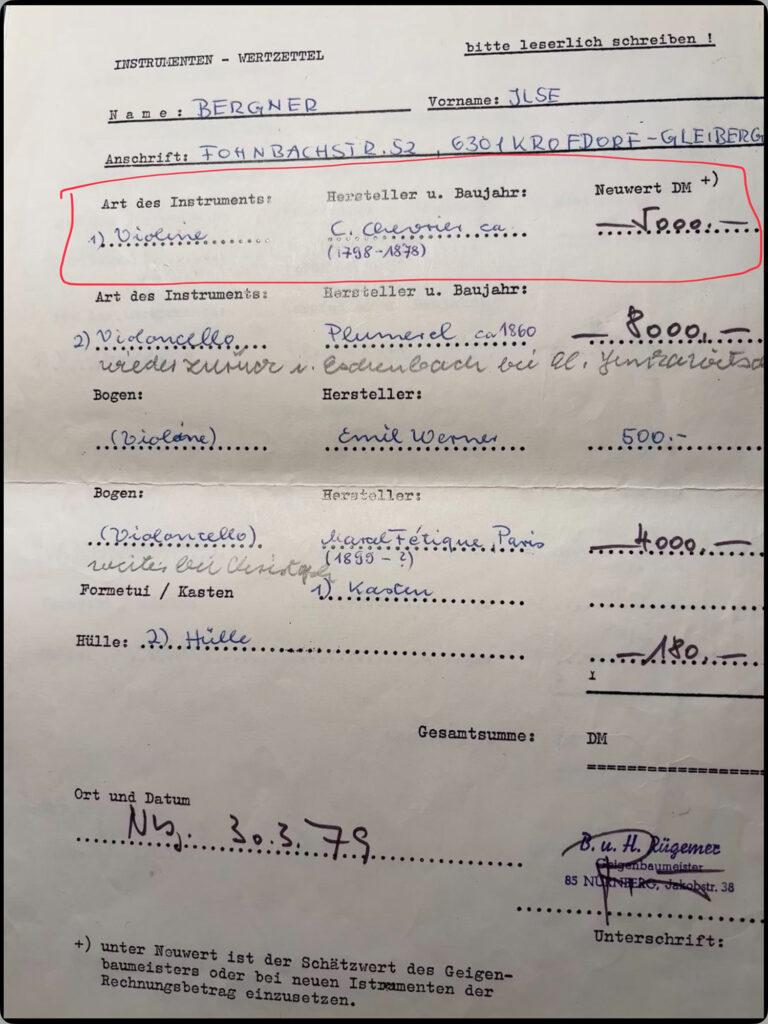 INSTRUMENTEN - WERTZETTEL
bitte leserlich schreiben !
Name: BERGNER Vorname: JLSE
Anschrift: FOHNBACHSTR. 52, 6301 KROFDORF-GLEIBERG
Art des Instruments: Hersteller u. Baujahr: Neuwert DM +)
1) Violine C. Chevrier ca — 5000.—
(1798-1878)
Art des Instruments: Hersteller u. Baujahr:
2) Violoncello Plumerel ca 1860 — 8000,—
wieder zurück i. Eschenbach bei
Bogen: Hersteller:
(Violine) Emil Werner 500.-
Bogen: Hersteller:
(Violoncello) Marcel Fétique, Paris — 4000,—
(1899 - ?)
bei Christoph
Formetui / Kasten 1) Kasten
Hülle: 2) Hülle — 180,—
Gesamtsumme: DM
Ort und Datum
Nbg. 30.3.79
B. u. H. Rügemer
Geigenbaumeister
85 NÜRNBERG, Jakobstr. 38
Unterschrift:
+) unter Neuwert ist der Schätzwert des Geigen-
baumeisters oder bei neuen Istrumenten der
Rechnungsbetrag einzusetzen.